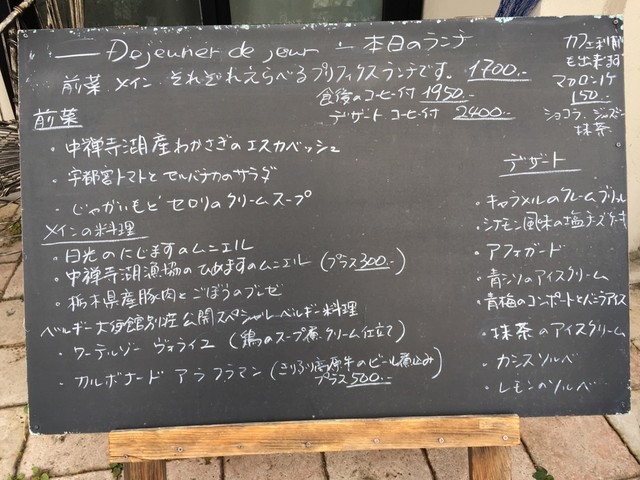 Dejeuner de jour 本日のランチ
前菜 メイン それぞれえらべるプリフィクスランチです。 1700.-
食後のコーヒー付 1950.-
デザート コーヒー付 2400.-
カフェ利用
も出来ます
マカロン1ケ
150.-
ショコラ、
抹茶
前菜
・中禅寺湖産わかさぎのエスカベッシュ
・宇都宮トマトとセルバチカのサラダ
・じゃがいもとセロリのクリームスープ
メインの料理
・日光のにじますのムニエル
・中禅寺湖漁協のひめますのムニエル (プラス300.-)
・栃木県産豚肉とごぼうのブレゼ
ベルギー大使館別荘公開スペシャルベルギー料理
・ワーテルゾーイ ヴォライユ (鶏のスープ煮クリーム仕立て)
・カルボナード アラフラマン (きりふり高原牛のビール煮込み
プラス500.-)
デザート
・キャラメルのクレームブリュレ
・シナモン風味の塩チーズケーキ
・アフォガード
・青シソのアイスクリーム
・青梅のコンポートとバニラアイス
・抹茶のアイスクリーム
・カシスソルベ
・レモンのソルベ